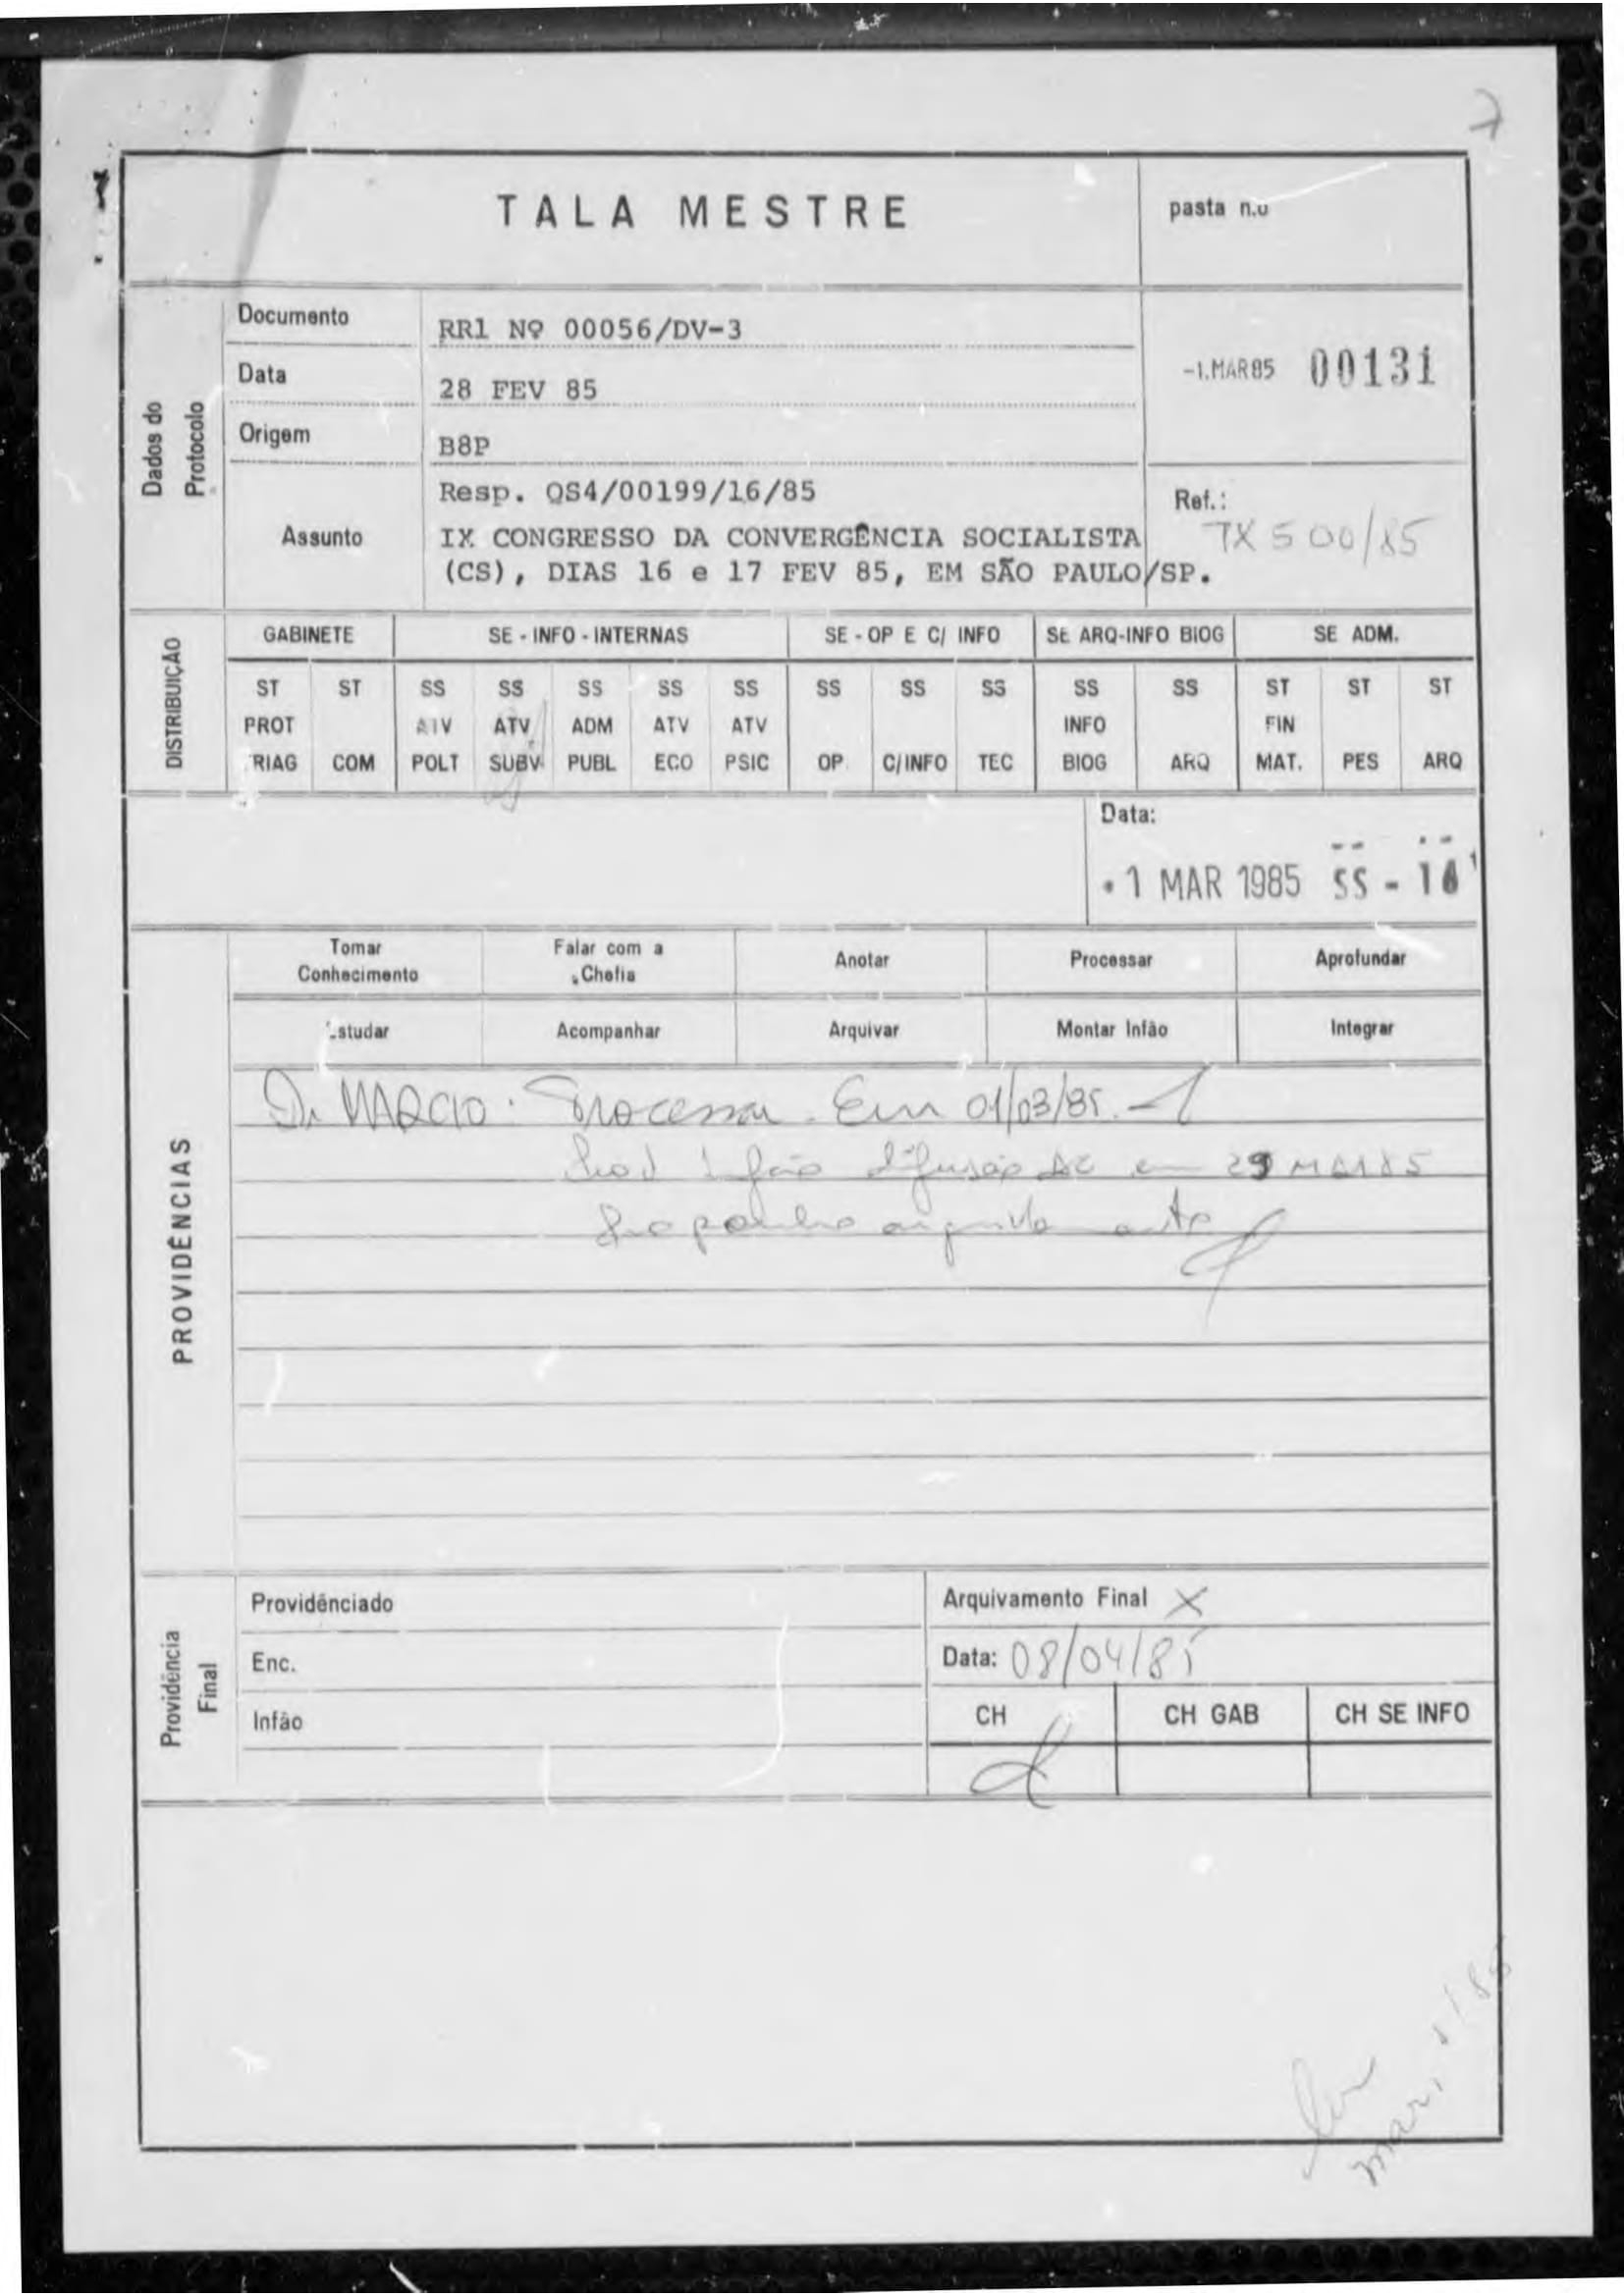 7
TALA MESTRE
pasta n.o
Dados do Protocolo
Documento
RR1 Nº 00056/DV-3
Data
28 FEV 85
-1.MAR85 00131
Origem
B8P
Assunto
Resp. QS4/00199/16/85
IX CONGRESSO DA CONVERGÊNCIA SOCIALISTA
(CS), DIAS 16 e 17 FEV 85, EM SÃO PAULO/SP.
Ref.:
TX 500/85
DISTRIBUIÇÃO
GABINETE SE - INFO - INTERNAS SE - OP E C/ INFO SE ARQ-INFO BIOG SE ADM.
ST ST SS SS SS SS SS SS SS SS SS SS ST ST ST
PROT ATV ATV ADM ATV ATV INFO FIN
TRIAG COM POLT SUBV PUBL ECO PSIC OP C/INFO TEC BIOG ARQ MAT. PES ARQ
Data:
1 MAR 1985 SS - 16
PROVIDÊNCIAS
Tomar Conhecimento Falar com a Chefia Anotar Processar Aprofundar
Estudar Acompanhar Arquivar Montar Infão Integrar
Dr MARCIO: Processar. Em 01/03/85.
Infão difusão AC em 29 MAR 85
Proponho arquivamento
Providência Final
Providênciado
Enc.
Infão
Arquivamento Final X
Data: 08/04/85
CH CH GAB CH SE INFO